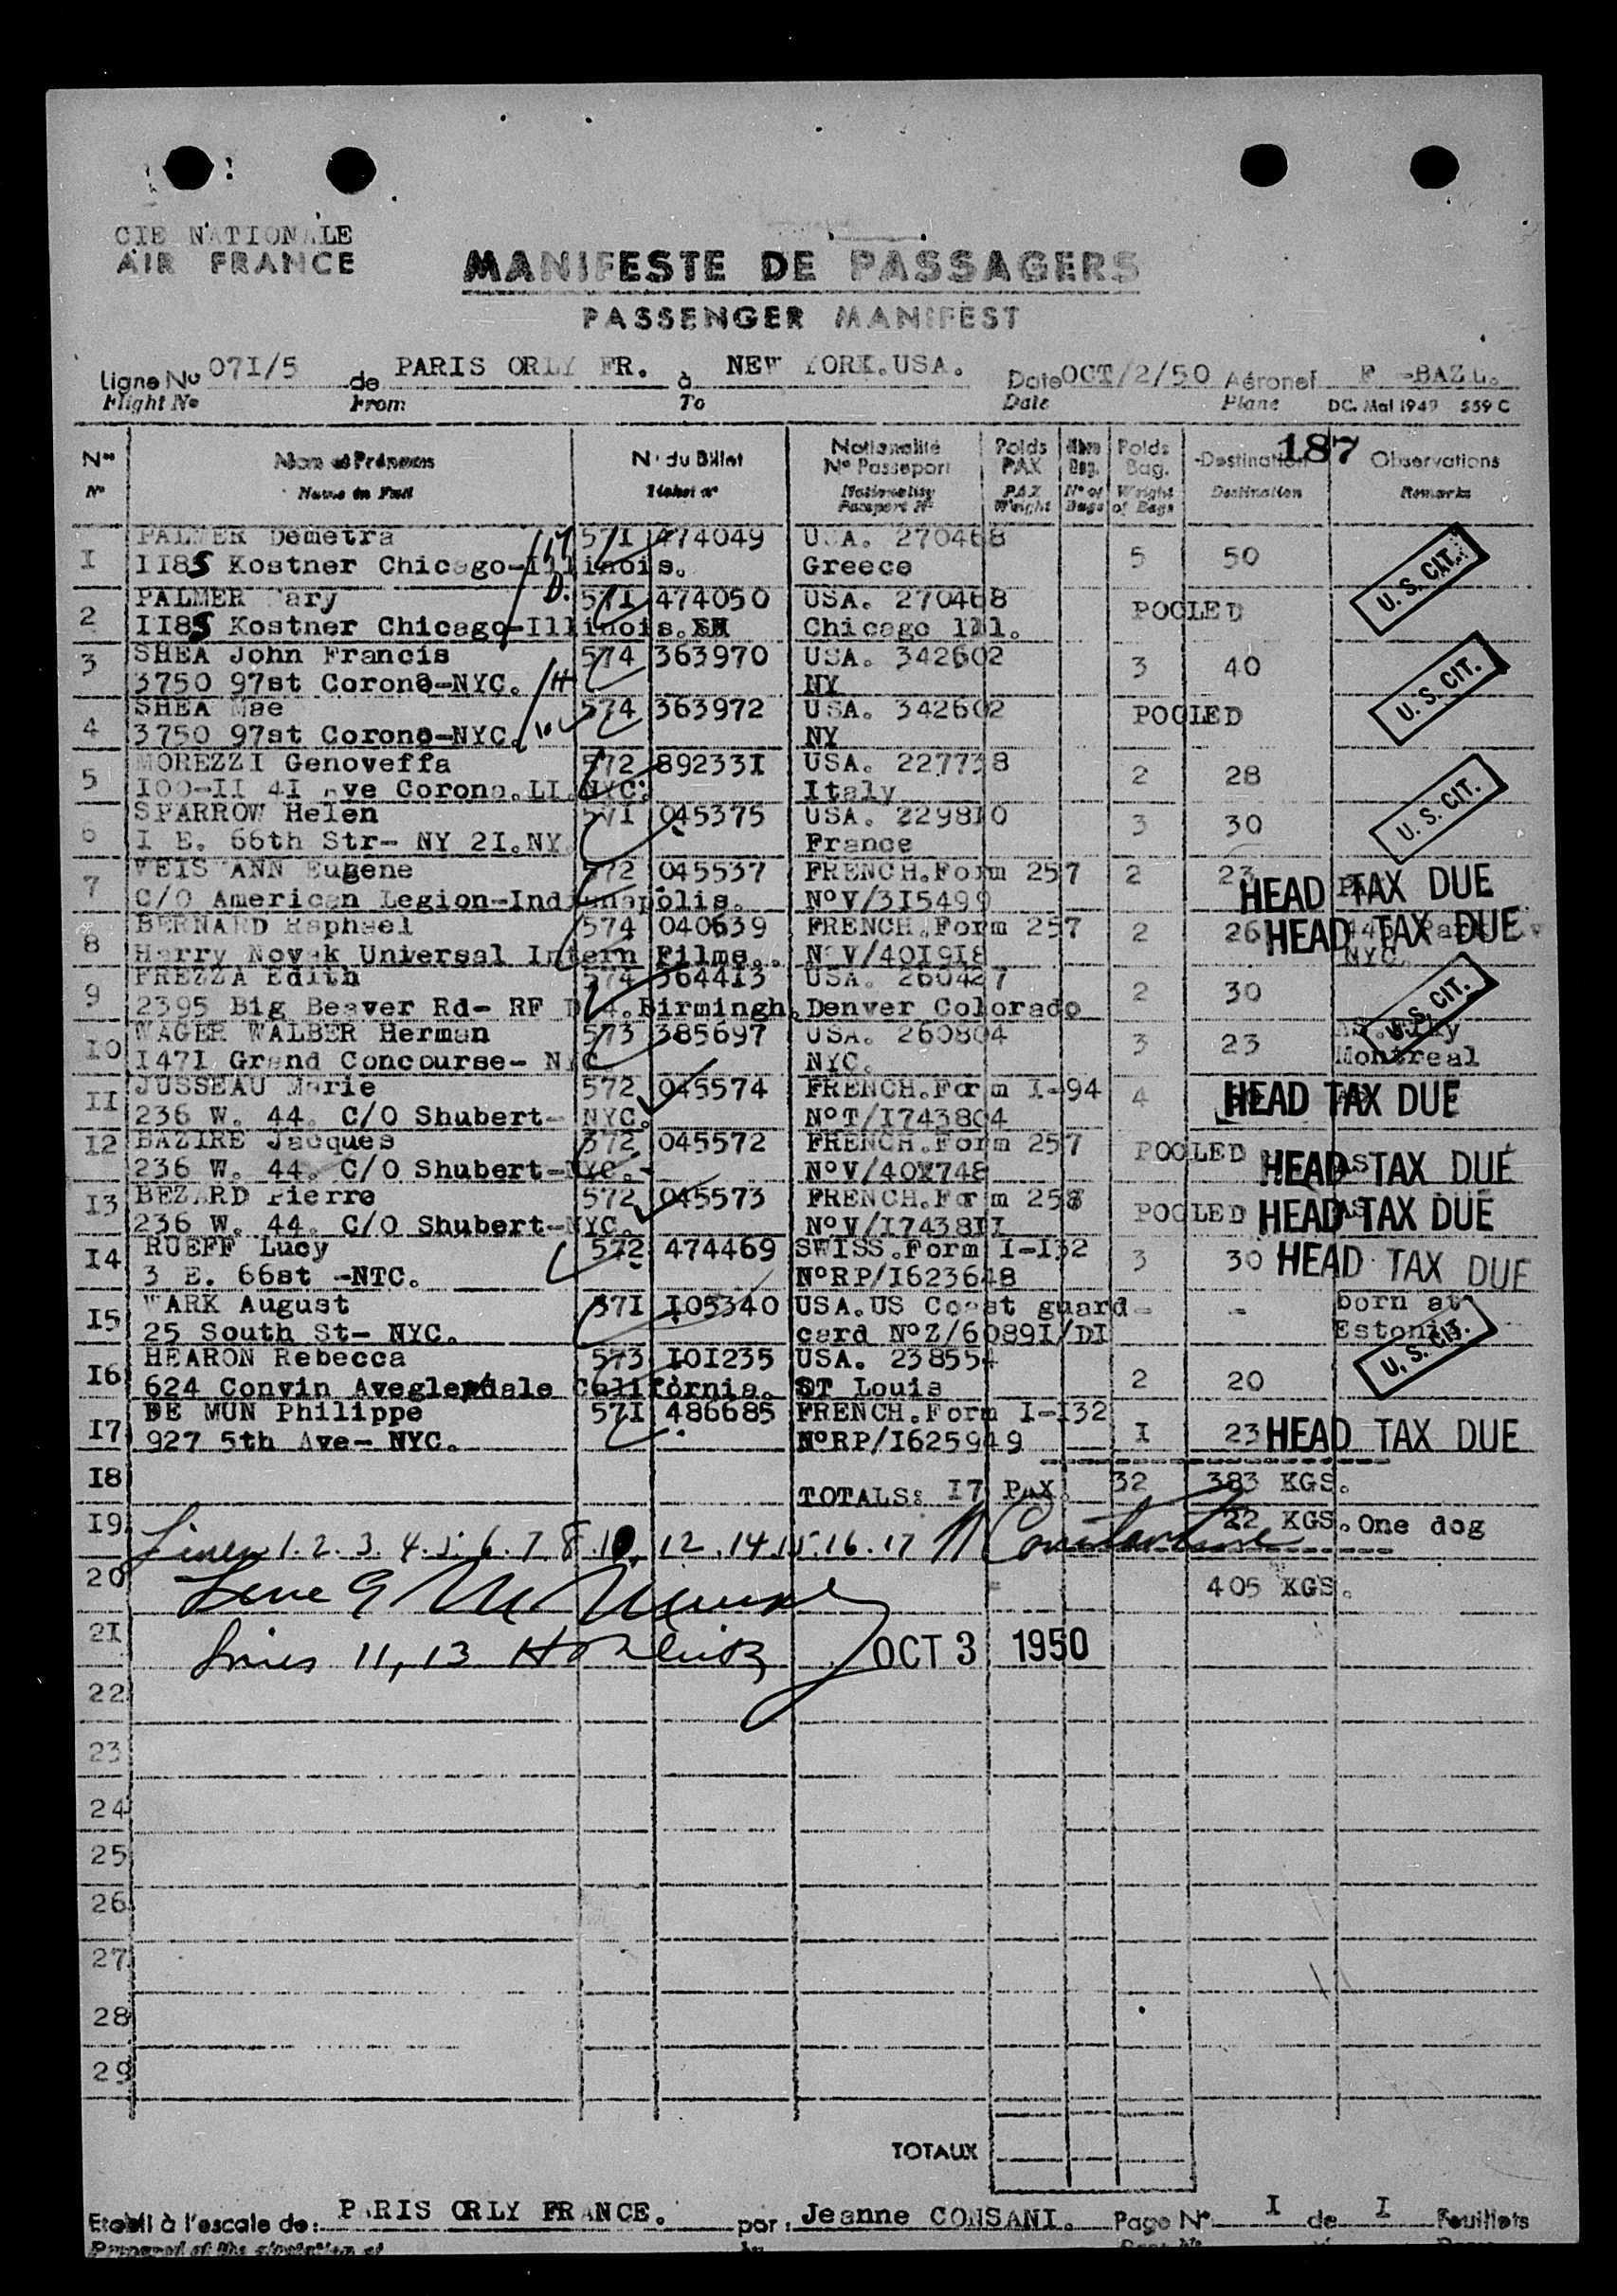 CIE NATIONALE
AIR FRANCE
MANIFESTE DE PASSAGERS
PASSENGER MANIFEST
Ligne No 07I/5 de PARIS ORLY FR. à NEW YORK.USA. Date OCT/2/50 Aéronef F -BAZL.
Flight No From To Date Plane DC. Mai 1949 559 C
187
Nos Nom et Prénoms No du Billet Nationalité No Passeport Poids PAX Nbre Bag. Poids Bag. Destination Observations
No Name in Full Ticket no Nationality Passport No PAX Weight No of Bags Weight of Bags Destination Remarks
I PALMER Demetra 57I 474049 USA. 270468 5 50 U.S. CIT.
II85 Kostner Chicago-Illinois. Greece
2 PALMER Mary 57I 474050 USA. 270468 POOLED
II85 Kostner Chicago-Illinois. Chicago Ill.
3 SHEA John Francis 574 363970 USA. 342602 3 40 U.S. CIT.
3750 97st Corona-NYC. NY
4 SHEA Mae 574 363972 USA. 342602 POOLED
3750 97st Corona-NYC. NY
5 MOREZZI Genoveffa 572 89233I USA. 227738 2 28 U.S. CIT.
I00-II 4I ave Corona.LI.NYC. Italy
6 SPARROW Helen 57I 045375 USA. 229810 3 30
I E. 66th Str- NY 2I.NY. France
7 WEISMANN Eugene 572 045537 FRENCH.Form 257 2 23 HEAD TAX DUE
C/O American Legion-Indianapolis. No V/3I5499
8 BERNARD Raphael 574 040639 FRENCH.Form 257 2 26 HEAD TAX DUE
Harry Novak Universal Intern Films.. No V/40I9I8 NYC.
9 FREZZA Edith 574 364413 USA. 260427 2 30 U.S. CIT.
2395 Big Beaver Rd- RF D 4.Birmingh. Denver Colorado
I0 WAGER WALBER Herman 573 385697 USA. 260804 3 23
I47I Grand Concourse- NYC NYC. Montreal
II JUSSEAU Marie 572 045574 FRENCH.Form I-94 4 HEAD TAX DUE
236 W. 44. C/O Shubert- NYC. No T/I743804
I2 BAZIRE Jacques 572 045572 FRENCH.Form 257 POOLED HEAD TAX DUE
236 W. 44. C/O Shubert-NYC.- No V/40X748
I3 BEZARD Pierre 572 045573 FRENCH.Form 258 POOLED HEAD TAX DUE
236 W. 44. C/O Shubert-NYC. No V/I7438II
I4 RUEFF Lucy 572 474469 SWISS.Form I-I32 3 30 HEAD TAX DUE
3 E. 66st -NTC. No RP/I623648
I5 WARK August 57I I05340 USA.US Coast guard - - born at
25 South St- NYC. card No Z/6089I/DI Estonia U.S. CIT.
I6 HEARON Rebecca 573 I0I235 USA. 238554 2 20
624 Convin Aveglendale California. ST Louis
I7 DE MUN Philippe 57I 486685 FRENCH.Form I-I32 I 23 HEAD TAX DUE
927 5th Ave- NYC. No RP/I625949
I8 TOTALS: I7 PAX. 32 383 KGS.
I9 Lines 1.2.3.4.5.6.7.8.10.12.14.15.16.17 22 KGS. One dog
20 Line 9 405 KGS.
2I Lines 11, 13 OCT 3 1950
22
23
24
25
26
27
28
29
TOTAUX
Etabli à l'escale de: PARIS ORLY FRANCE. par: Jeanne CONSANI. Page No I de I Feuillets